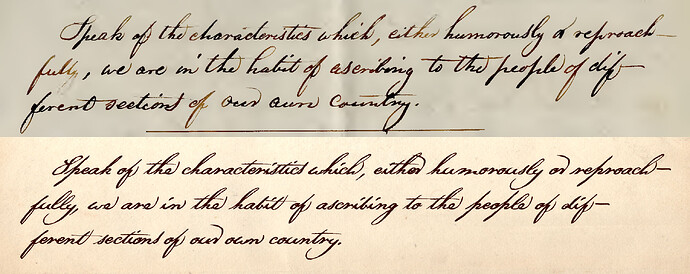 Speak of the characteristics which, either humorously or reproach-
fully, we are in the habit of ascribing to the people of dif-
ferent sections of our own country.
Speak of the characteristics which, either humorously or reproach-
fully, we are in the habit of ascribing to the people of dif-
ferent sections of our own country.